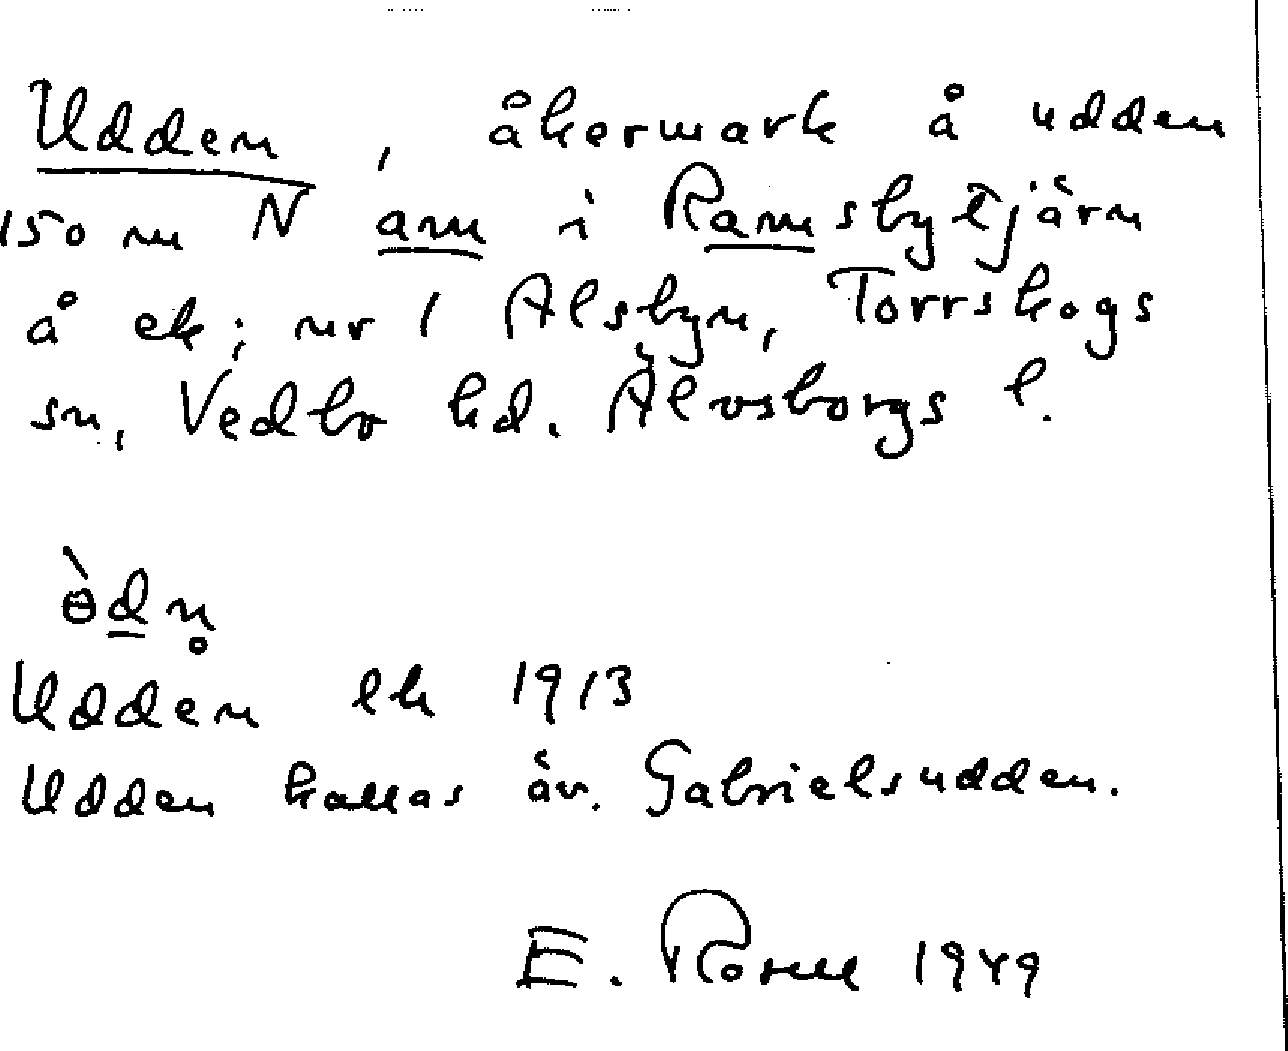 Udden, åkermark å udden
150 m N am i Ramsbytjärn
å ek; nr 1 Alsbyn, Torrskogs
sn, Vedbo hd. Älvsborgs l.
ɵ̀dn̥
Udden ek 1913
Udden kallas äv. Gabrielsudden.
E. 1949